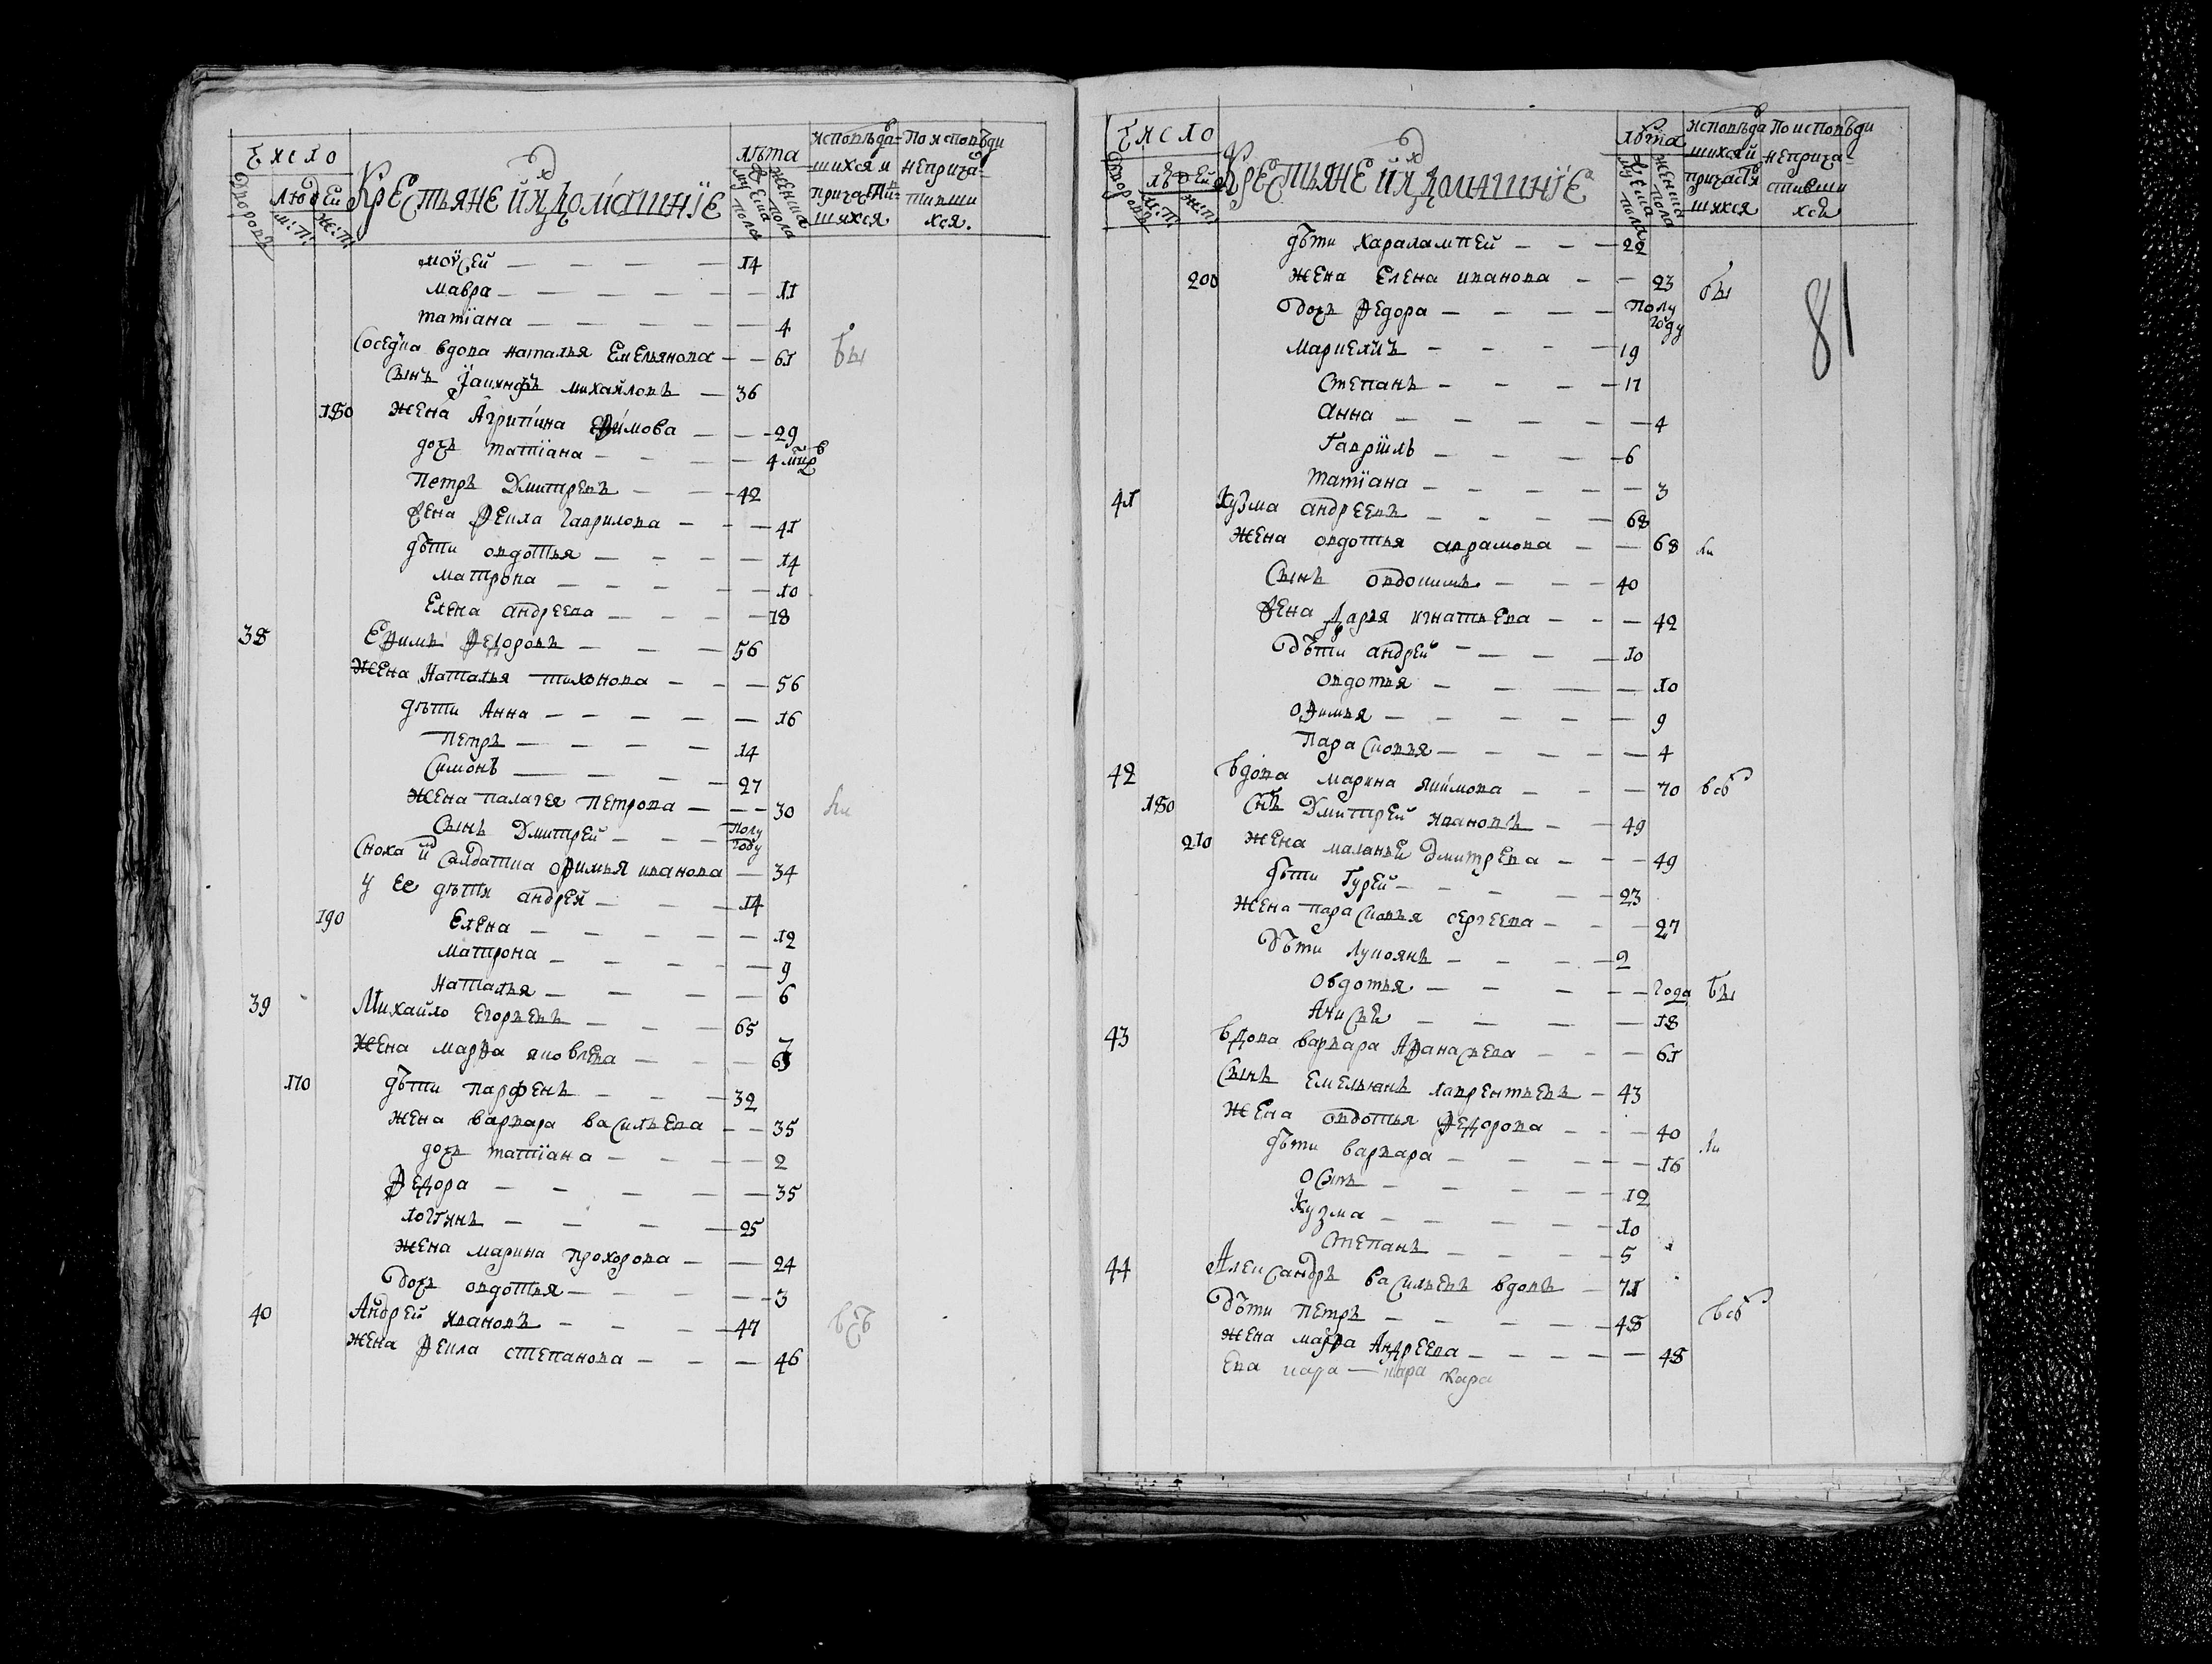 Число
дворовъ
людей
м: п:
ж: п:
Крестьяне и их домашнїе
лѣта
мужеска пола
женска пола
исповѣда-
шихся и
причасти-
шихся
По исповѣди
неприча-
стивши
хся.
моӱсей — 14
мавра — 11
татїана — 4
Соседка вдова наталья Емельянова — 61
сынъ Їакинфъ михайловъ — 36
180 жена Агрипина Ефимова — 29
дочь татїана — 4
Петръ Дмитревъ — 42
жена Фекла гаврилова — 41
дѣти овдотья — 14
матрона — 10
Елена андреева — 18
38 Ефимъ Федоровъ — 56
Жена Наталья тихонова — 56
дѣти Анна — 16
петръ — 14
Симонъ — 27
Жена палагея петрова — 30
сынъ Дмитрей — полу году
Сноха и салдатка офимья иванова — 34
у ее дѣти андрей — 14
190 Елена — 12
матрона — 9
наталья — 6
39 Михайло Егорьевъ — 65
Жена марфа яковлева — 63
170 дѣти парфенъ — 32
жена варвара васильева — 35
дочь татїана — 2
Федора — 35
логгинъ — 25
жена марина прохорова — 24
дочь овдотья — 3
40 Андрей ивановъ — 47
жена Фекла степанова — 46
Число
дворовъ
людей
м: п:
ж: п:
Крестьяне и их домашнїе
лѣта
мужеска пола
женска пола
исповѣда
шихся и
причастї
шихся
По исповѣди
неприча-
стивши
хся
81
дѣти харалампей — 22
200 жена Елена иванова — 23
дочь Федора — полу году
Маркелъ — 19
Степанъ — 11
анна — 4
Гаврїилъ — 6
татїана — 3
41 Кузма андреевъ — 68
жена овдотья аврамова — 68
сынъ овдокимъ — 40
жена Дарья игнатьева — 42
дѣти андрей — 10
овдотья — 10
офимья — 9
Парасковья — 4
42 вдова марина якимова — 70
180 снъ Дмитрей ивановъ — 49
210 жена маланья дмитрева — 49
дѣти Гурей — 23
жена парасковья сергеева — 27
дѣти Лукоянъ — 2
Овдотья — года
Анисья — 18
43 вдова варвара Афанасьева — 61
сынъ Емельянъ лаврентьевъ — 43
жена овдотья Федорова — 40
дѣти варвара — 16
Осипъ — 12
Кузма — 10
степанъ — 5
44 Александръ васильевъ вдовъ — 71
дѣти петръ — 48
жена марфа Андреева — 48